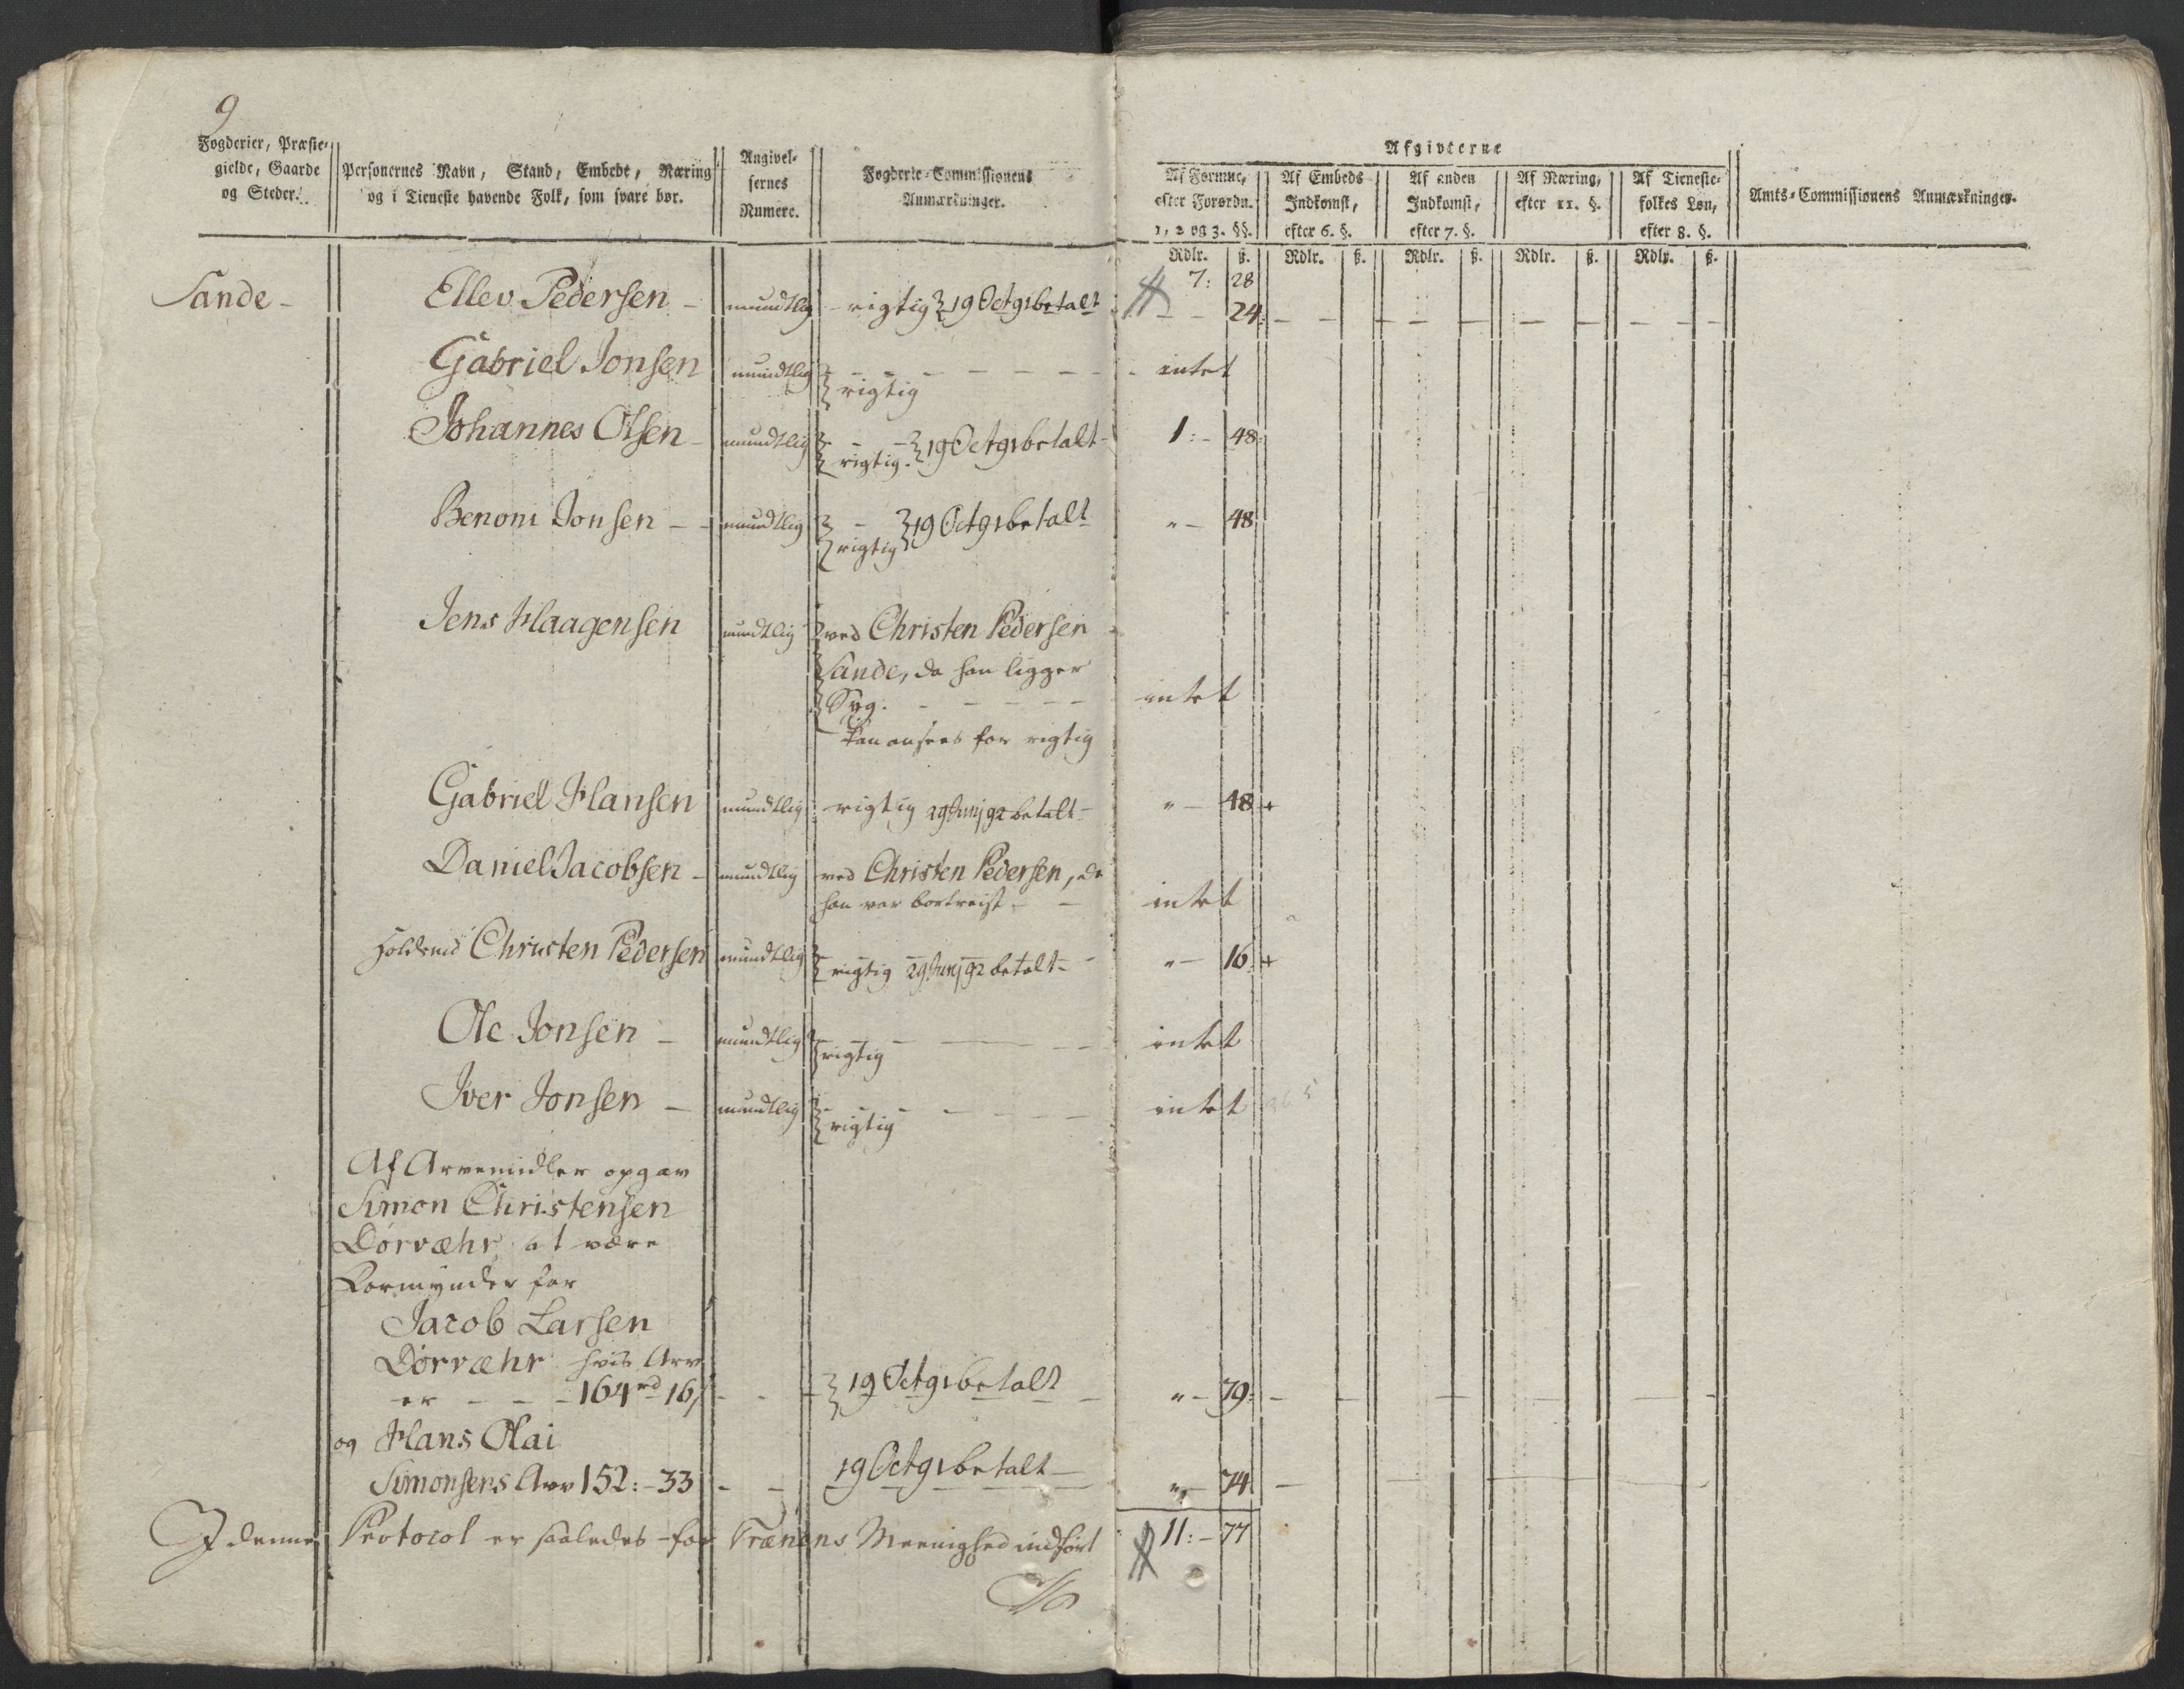 9
Fogderier, Præste-
gielde, Gaarde
og Steder.
Personernes Navn, Stand, Embede, Næring
og i Tieneste havende Folk, som svare bør.
Angivel-
sernes
Numere.
Fogderie-Commissionens
Anmærkninger.
Afgivterne
Af Formue,
efter Forordn.
1, 2 og 3. §§.
Af Embeds
Indkomst,
efter 6. §.
Af anden
Indkomst,
efter 7. §.
Af Næring,
efter 11. §.
Af Tieneste-
folkes Løn,
efter 8. §.
Amts-Commissionens Anmærkninger.
Rdlr. ß. Rdlr. ß. Rdlr. ß. Rdlr. ß. Rdlr. ß.
7: 28
Sande - Ellev Pedersen - mundtlig - rigtig 19 Oct 91 betalt - - 24
Gabriel Jonsen mundtlig - - - - - - - intet
rigtig
Johannes Olsen - mundtlig - - 19 Oct 91 betalt - 1:- 48
rigtig.
Benoni Jonsen - - mundtlig - 19 Oct 91 betalt " - 48
rigtig
Jens Haagensen mundtlig ved Christen Pedersen
Sande, da han ligger
Syg. - - - - - intet
kan ansees for rigtig
Gabriel Hansen mundtlig rigtig 29 Junj 92 betalt - " - 48 +
Daniel Jacobsen - mundtlig ved Christen Pedersen, da
han var bortreist - - intet
Christen Pedersen mundtlig rigtig 29 Junj 92 betalt - " - 16 +
Ole Jonsen - mundtlig - - - - intet
rigtig
Iver Jonsen - mundtlig - - - - - intet
rigtig
Af Arvemidler opgav
Simon Christensen
Dorvæhr at være
Formynder for
Jacob Larsen
Dorvæhr hvis Arv
er - - - 164 rd 16 ß - - 19 Oct 91 betalt - " - 79: -
og Hans Olai
Simonsens Arv 152: - 33 - - 19 Oct 91 betalt - " - 74 -
I denne Protocol er saaledes for Trænens Meenighed indført 11: - 77